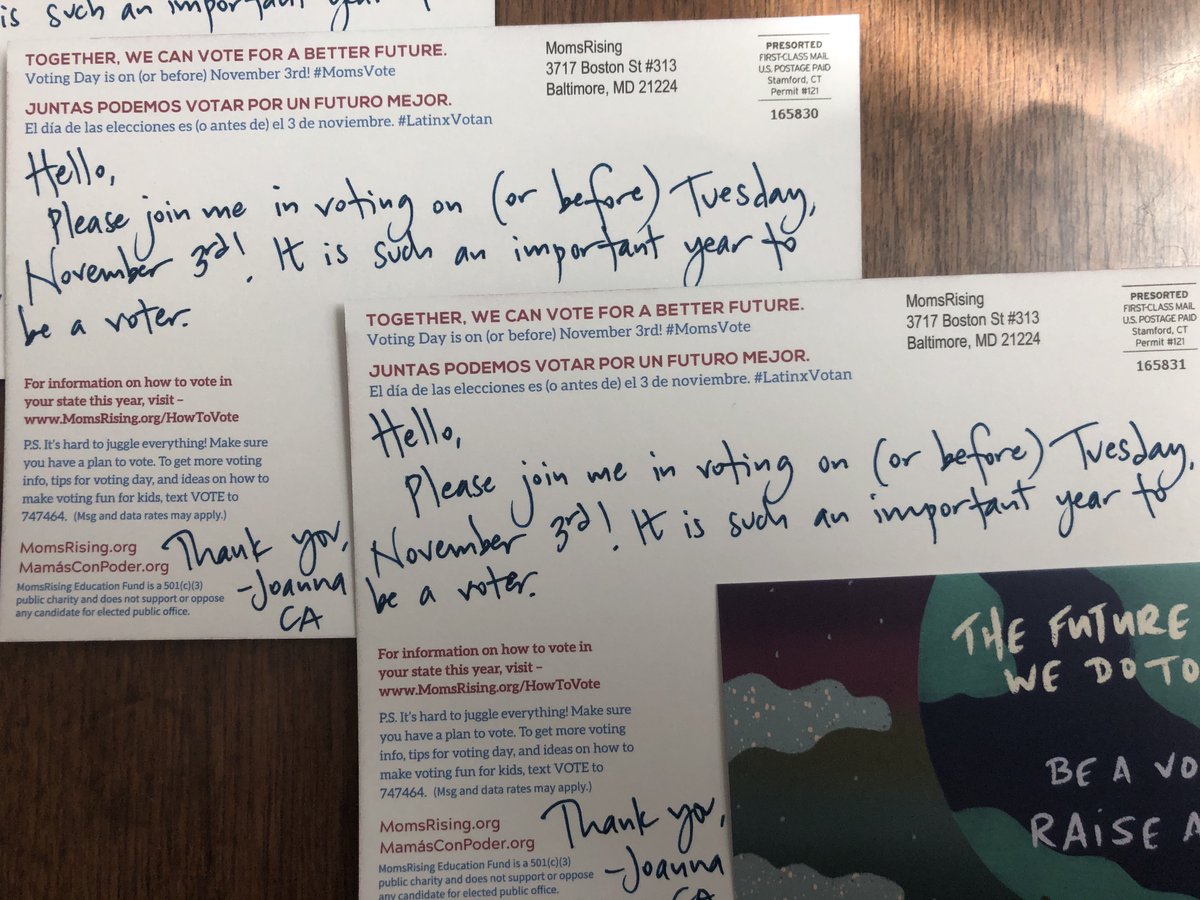 is such an important year
TOGETHER, WE CAN VOTE FOR A BETTER FUTURE.
Voting Day is on (or before) November 3rd! #MomsVote
JUNTAS PODEMOS VOTAR POR UN FUTURO MEJOR.
El día de las elecciones es (o antes de) el 3 de noviembre. #LatinxVotan
MomsRising
3717 Boston St #313
Baltimore, MD 21224
PRESORTED
FIRST-CLASS MAIL
U.S. POSTAGE PAID
Stamford, CT
Permit #121
165830
Hello,
Please join me in voting on (or before) Tuesday,
November 3rd! It is such an important year to
be a voter.
For information on how to vote in
your state this year, visit –
www.MomsRising.org/HowToVote
P.S. It's hard to juggle everything! Make sure
you have a plan to vote. To get more voting
info, tips for voting day, and ideas on how to
make voting fun for kids, text VOTE to
747464. (Msg and data rates may apply.)
MomsRising.org
MamásConPoder.org
MomsRising Education Fund is a 501(c)(3)
public charity and does not support or oppose
any candidate for elected public office.
Thank you,
-Joanna
CA
TOGETHER, WE CAN VOTE FOR A BETTER FUTURE.
Voting Day is on (or before) November 3rd! #MomsVote
JUNTAS PODEMOS VOTAR POR UN FUTURO MEJOR.
El día de las elecciones es (o antes de) el 3 de noviembre. #LatinxVotan
MomsRising
3717 Boston St #313
Baltimore, MD 21224
PRESORTED
FIRST-CLASS MAIL
U.S. POSTAGE PAID
Stamford, CT
Permit #121
165831
Hello,
Please join me in voting on (or before) Tuesday,
November 3rd! It is such an important year to
be a voter.
For information on how to vote in
your state this year, visit –
www.MomsRising.org/HowToVote
P.S. It's hard to juggle everything! Make sure
you have a plan to vote. To get more voting
info, tips for voting day, and ideas on how to
make voting fun for kids, text VOTE to
747464. (Msg and data rates may apply.)
MomsRising.org
MamásConPoder.org
MomsRising Education Fund is a 501(c)(3)
public charity and does not support or oppose
any candidate for elected public office.
Thank you,
-Joanna
CA
THE FUTURE
WE DO TO
BE A VO
RAISE A